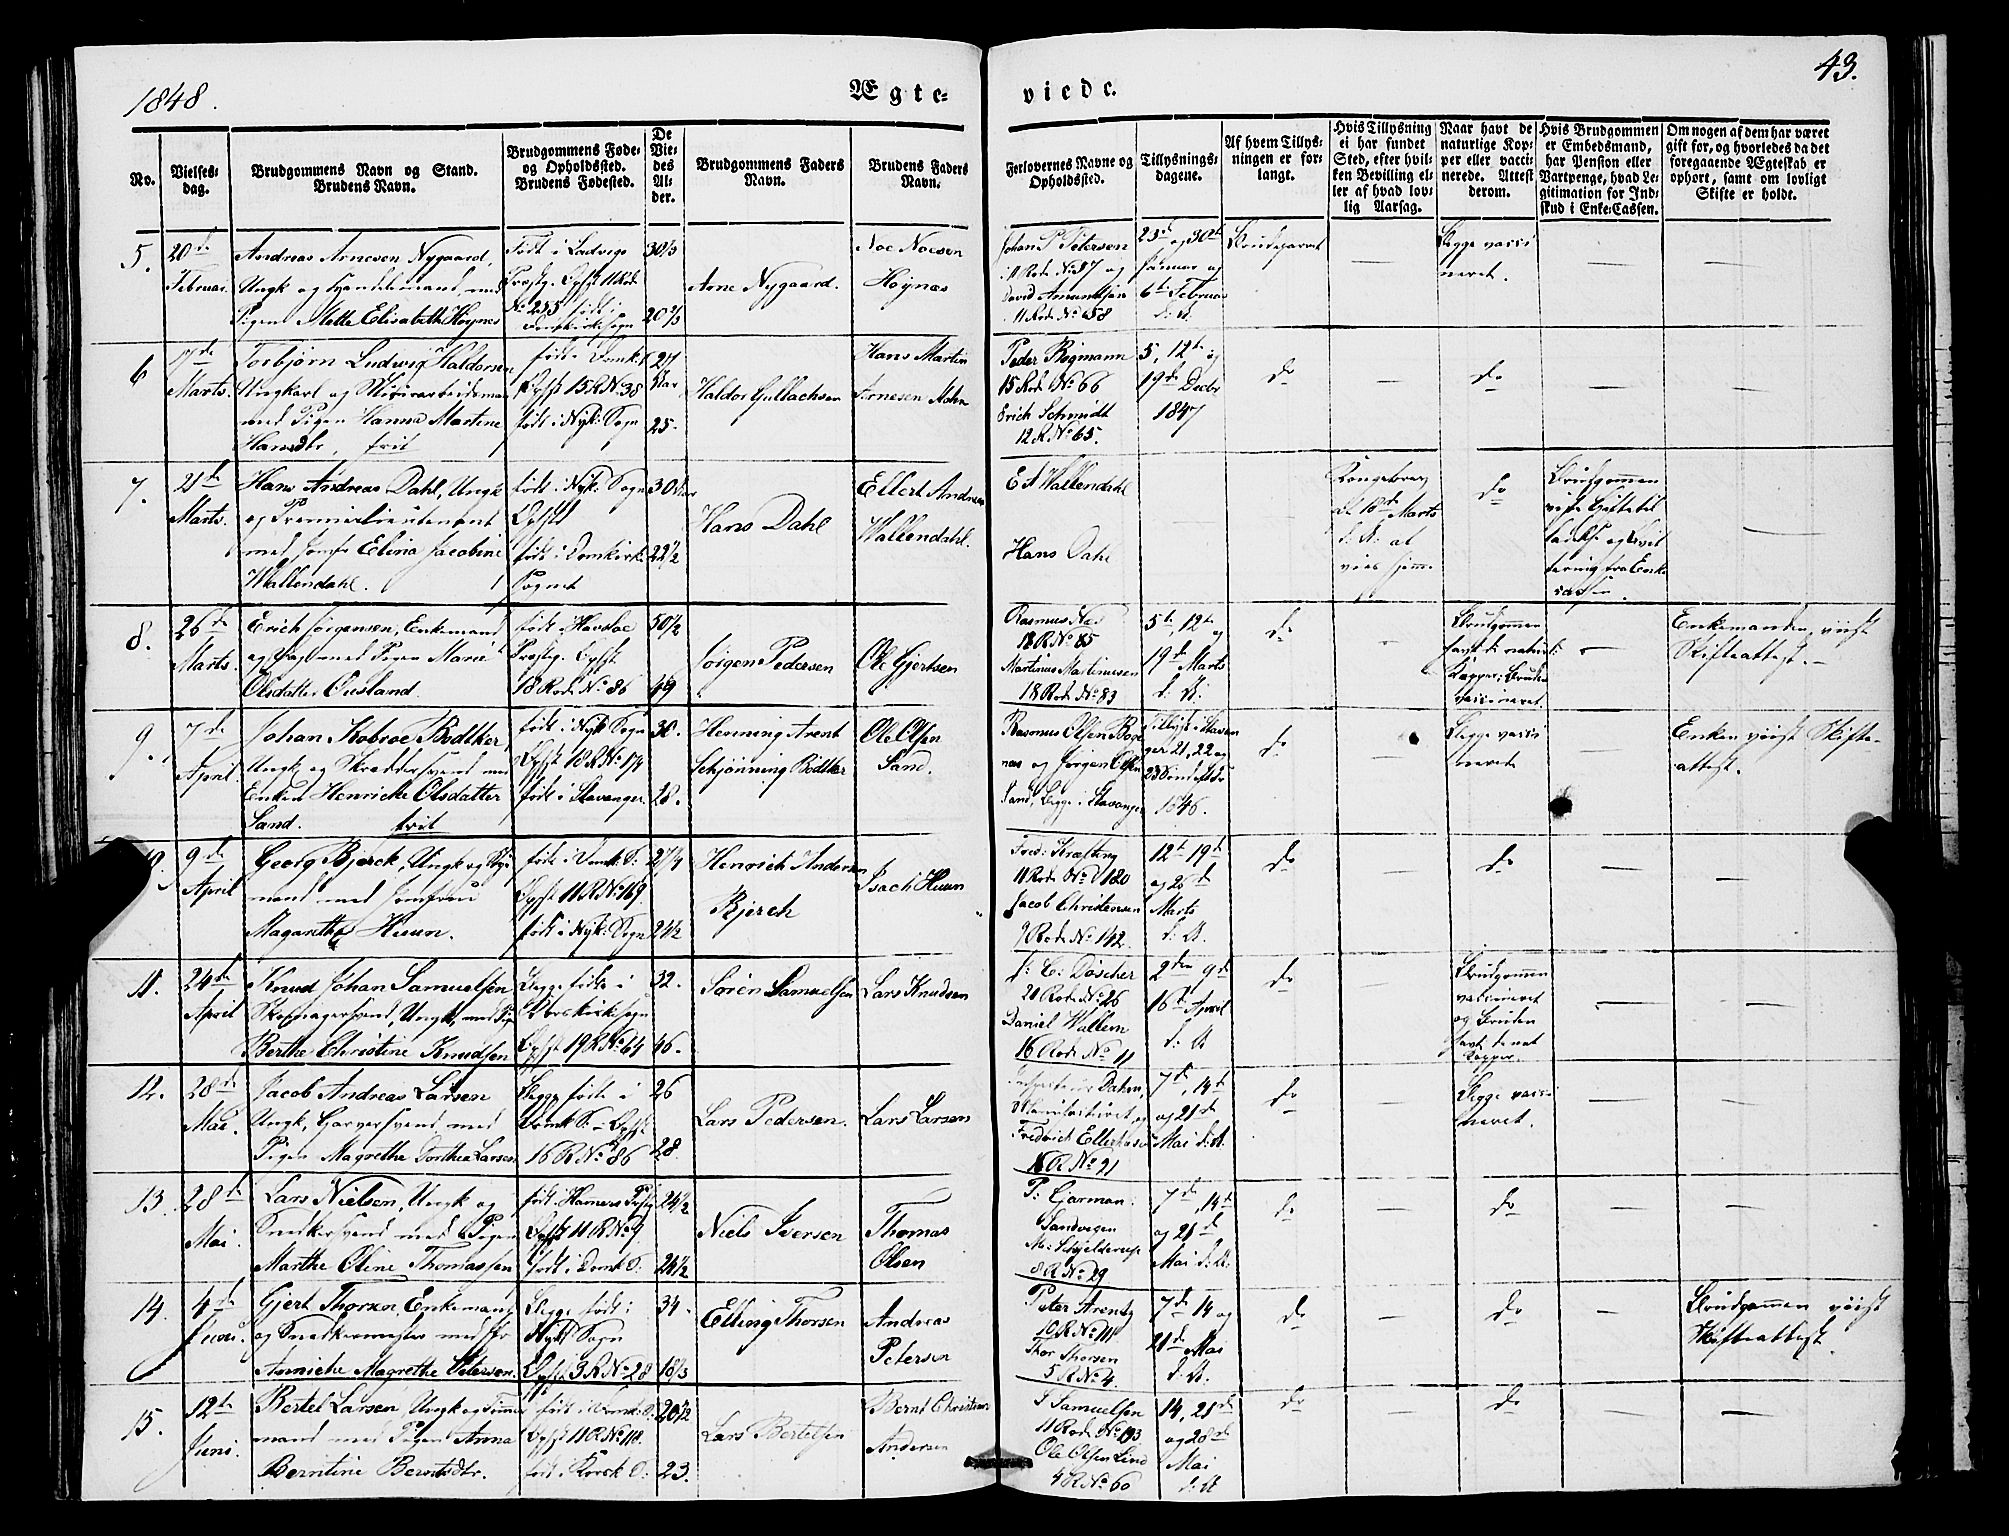 1848.
Ægte-
viede.
43.
No.
Vielses-
dag.
Brudgommens Navn og Stand.
Brudens Navn.
Brudgommens Føde-
og Opholdssted.
Brudens Fødested.
De
Vie-
des
Al-
der.
Brudgommens Faders
Navn.
Brudens Faders
Navn.
Forlovernes Navne og
Opholdssted.
Tillysnings-
dagene.
Af hvem Tillys-
ningen er for-
langt.
Hvis Tillysning
ei har fundet
Sted, efter hvil-
ken Bevilling el-
ler af hvad lov-
lig Aarsag.
Naar havt de
naturlige Kop-
per eller vacci-
nerede. Attest
derom.
Hvis Brudgommen
er Embedsmand,
har Pension eller
Vartpenge, hvad Le-
gitimation for Ind-
skud i Enke-Cassen.
Om nogen af dem har været
gift før, og hvorledes da det
foregaaende Ægteskab er
ophørt, samt om lovligt
Skifte er holdt.
5.
20de
Februar.
Andreas Arnesen Nygaard,
Ungk og Handelsmand, med
Pigen Mette Elisabeth Høynes
Født i Ladvigs
Præstg. Opht 11 Rode
No 255 født i
Domkirkesogn
Arne Nygaard.
Noe Noesen
Høynæs
Johan P Petersen
11 Rode No 97 og
David Amundsen
11 Rode No 658
23de og 30te
Januar og
6te Februar
d: A.
vacci
neret.
6
17de
Marts.
Torbjørn Ludwig Haldorsen
Ungkarl og Muurarbeidsman
med Pigen Hanna Martine
Hansdtr, frit
født i Domk:
Opht 15 R No 38
født i Nyk: Sogn
27
25.
Haldor Gullachsen
Hans Martin
Arnesen Mohn
Peder Bøgmann
15 Rode No 66
Erich Schmidt
12 R No 65.
5, 12te og
19de Decbr
1847
do
do
7.
21de
Marts.
Hans Andreas Dahl, Ungk
og Premierlieutenant
med Jomfr Elina Jacobine
Wallendahl.
født i Nyk: Sogn
Opht
født i Domkirke
Sognet
30
22 1/2
Hans Dahl
Ellert Andreas
Wallendahl.
E A Wallendahl
Hans Dahl
Kongebrev
18de Marts
d: A: at
vies hjemme
do
Brudgommen
8.
26de
Marts.
Erich Jørgensen, Enkemand
med Pigen Marie
Olsdatter Øusland.
Præstg. Opht
18 Rode No 86
50 1/2
49
Jørgen Pedersen
Ole Gjertsen
Rasmus
18 R No 85
Martinus Martinussen
18 Rode No 83
5te, 12te og
19de Marts
d: A:
do
Brudgommen
havt de naturl:
Kopper, Bruden
vaccineret.
Enkemanden, viist
Skifteattest.
9
7de
April
Johan Kobroe Bødtker,
Ungk og Skræddersvend med
Enken Henricke Olsdatter
Sand. frit
født i Nyk: Sogn
Opht 18 R No 174
født i Stavanger
30.
28.
Henning Arent
Schjønning Bødtker
Ole Olsen
Sand.
Rasmus Olsen
og Jørgen Olsen
Sand, Begge i Stavanger
Tillyst i Stavan
ger 21, 22 og
23
1846.
do
Begge vacci
nerede
Enken viist Skifte-
attest.
10.
9de
April
Georg Bjerck, Ungk og
mand med Jomfrue
Magarethe Huun.
født i Domk: S:
Opht 11 R No 169.
født i Nyk: Sogn
27 1/4
21 1/2
Henrich Andersen
Bjerck
Isach Huun
Fred: Kræfting
11 Rode No 180
Jacob Christensen
9 Rode No 142.
12te 19de
og 26de
Marts
d: A.
do
do
11.
24de
April
Knud Johan Samuelsen
Skomagersvend, Ungk, med Pigen
Berthe Christine Knudsen
Begge fødte i
Korskirkesogn
Opht 19 R No 64
32.
46.
Søren Samuelsen
Lars Knudsen
C: Døscher
20 Rode No 26
Daniel Wallem
16 Rode No 11
2den, 9de
16de April
d: A
do
Brudgommen
vaccineret
og Bruden
havt de nat
Kopper.
12.
28de
Mai.
Jacob Andreas Larsen
Ungk, Garversvend, med
Pigen Magrethe Dorthea Larsen
Begge fødte i
Domk S: Opht
16 R No 86
26
28
Lars Pedersen.
Lars Larsen
Dahm,
Fredrich Ellerhusen
16 R No 91
7de, 14de
og 21de
Mai d: A.
do
Begge vacci
neret.
13.
28de
Mai.
Lars Nielsen, Ungk og
Snedkersvend med Pigen
Marthe Oline Thomassen
født i Hammers Præstg
Opht 11 R No 9
født i Domk S:
24 1/2
26 1/2
Niels Iversen
Thomas
Olsen
P: Gjarman:
Sandvigen
M: Schjelderup
8 R No 29
7de, 14de
og 21de
Mai d: A:
do
do
14.
4de
Juni.
Gjert Thorsen, Enkemand
og Snedkermester med Jfr
Annicke Magrethe Petersen.
Begge født i
Nyk Sogn
Opht 3 R No 28
34.
18 1/3
Elling Thorsen
Andreas
Petersen
Peter Arentz
10 R No 111
Thor Thorsen
5 R No 4.
7de 14 og
21de Mai
d: A.
do
do
Brudgommen viist
Skifteattest.
15.
12te
Juni.
Bertel Larsen, Ungk og Tømmer
mand med Pigen Anna
Berntine Berntsdtr.
født i Domk: S:
Opht 11 R No 118.
født i Korsk S:
20 1/2
23.
Lars Bertelsen
Bernt Christian
Andersen
S Samuelsen
11 Rode No 193
Ole Olsen Lind
4 R No 60
14, 21de
og 28de
Mai
d: A
do
do